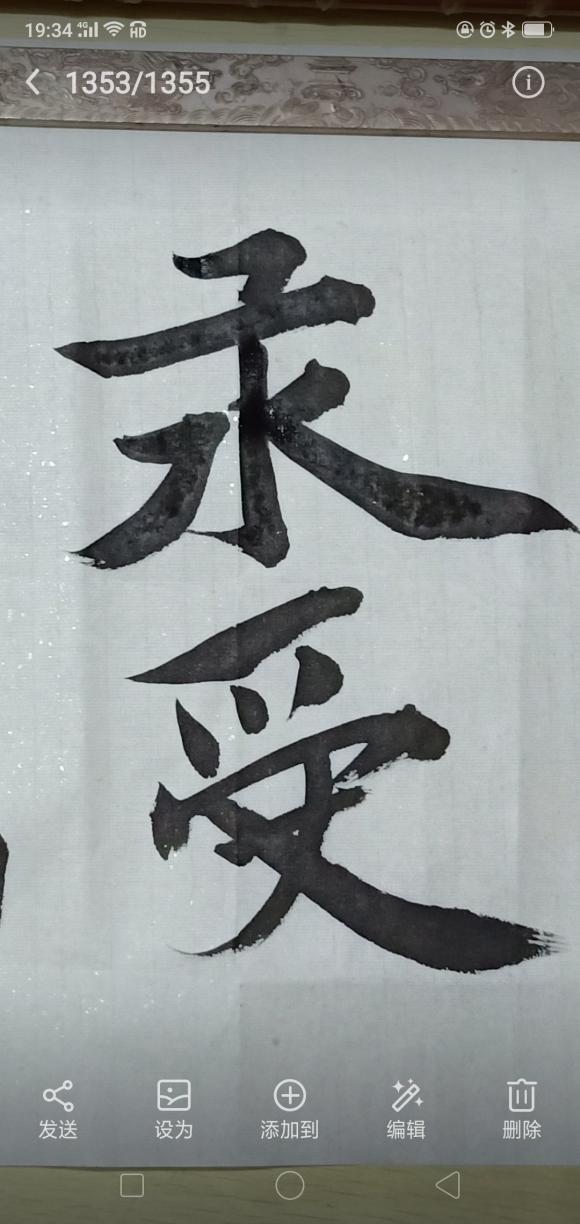 19:34 4G HD
1353/1355
永
受
发送 设为 添加到 编辑 删除